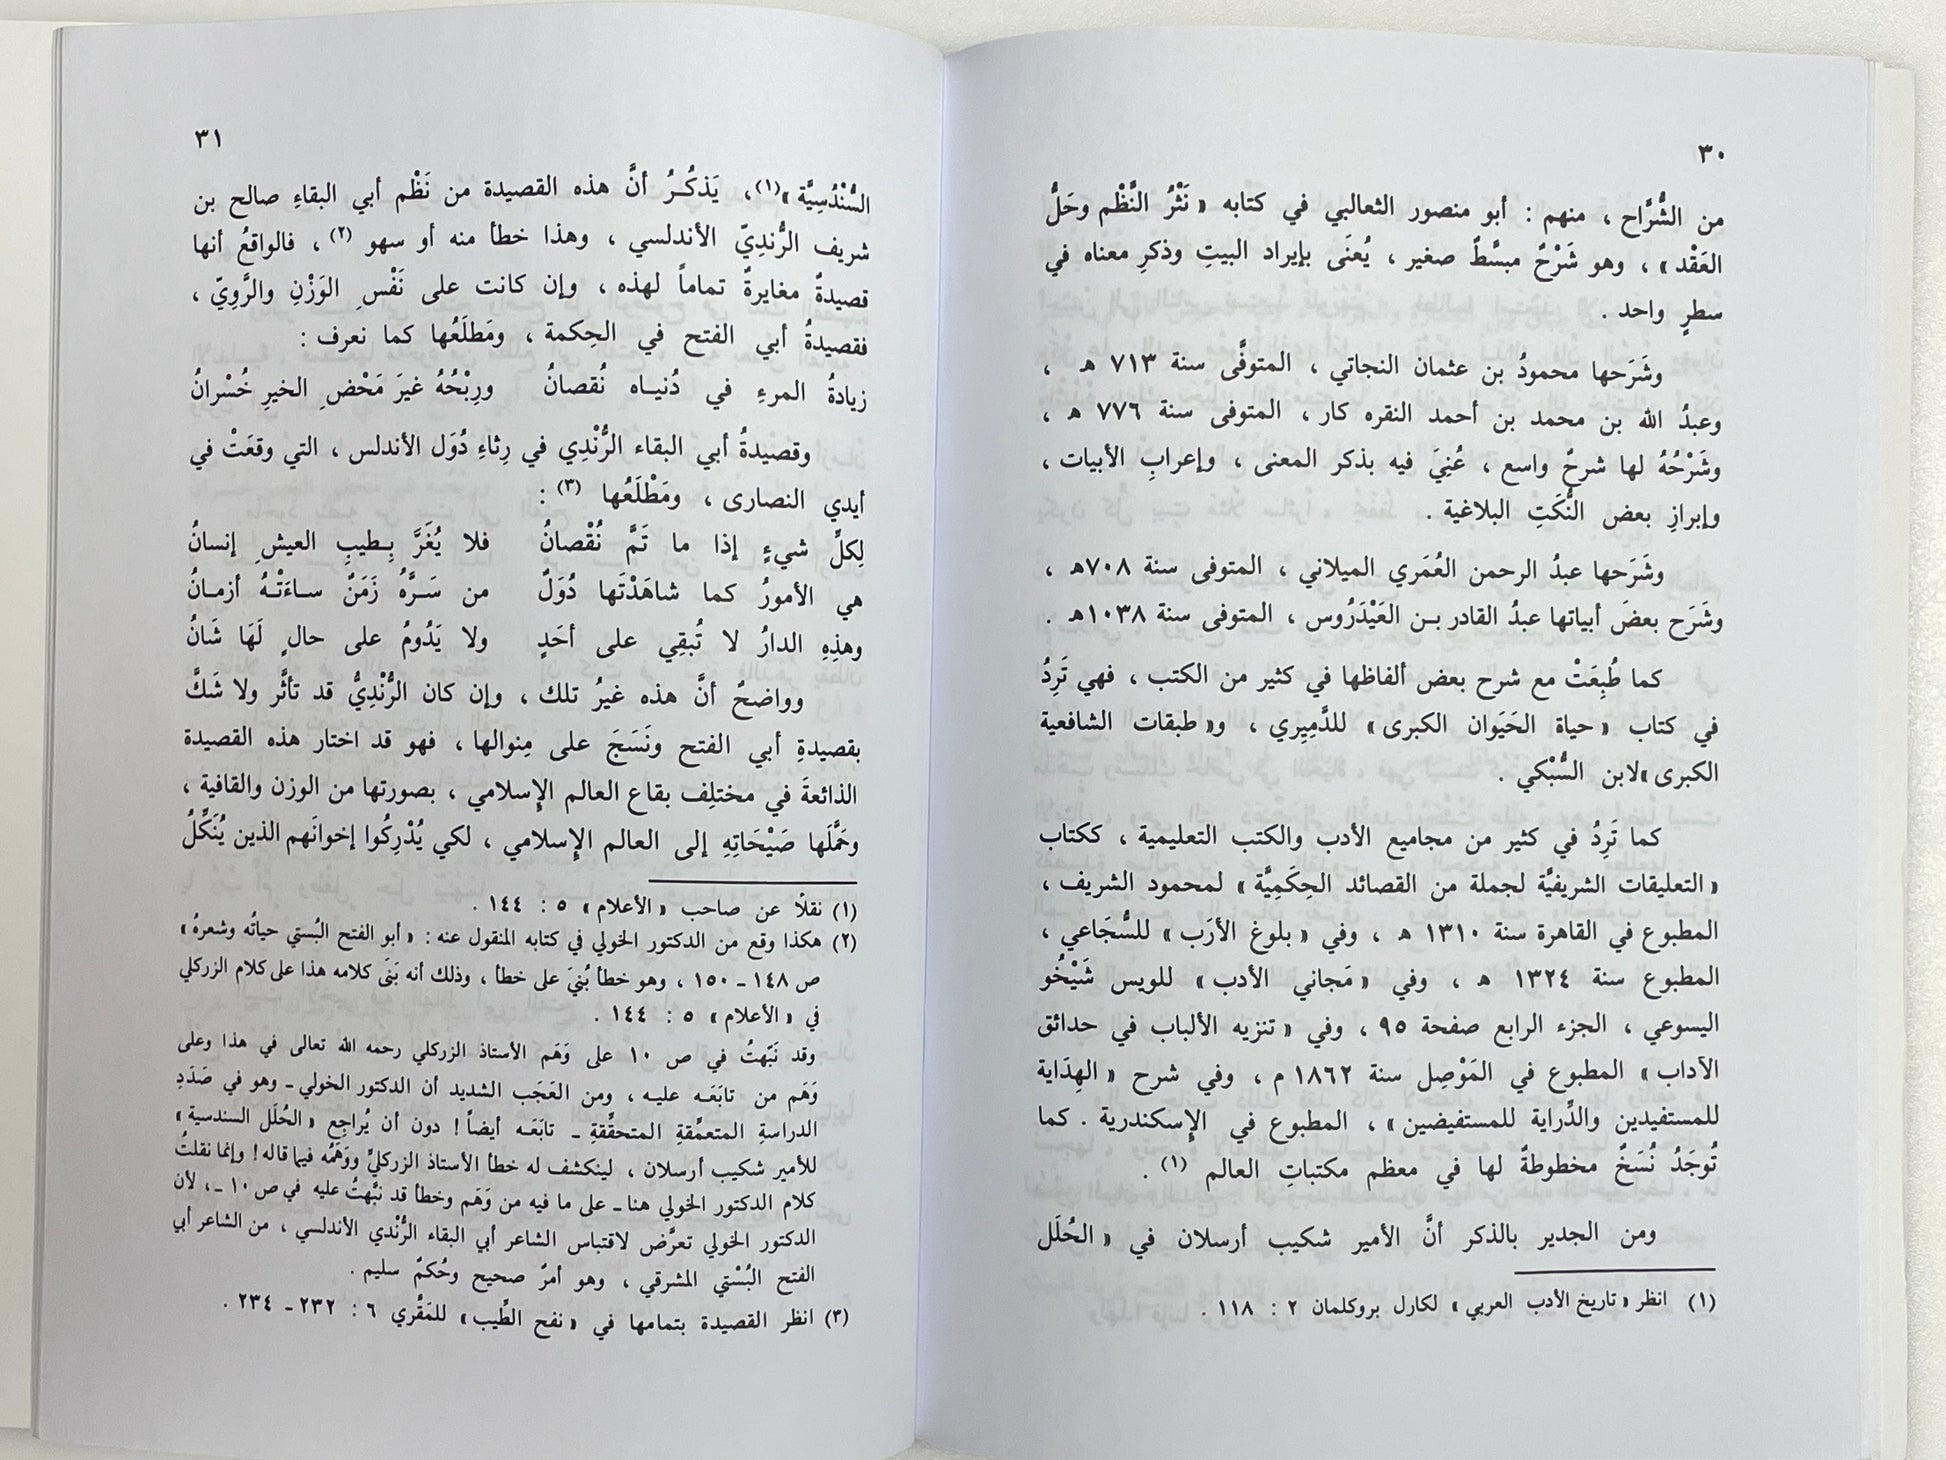 ٣٠
من الشُّرَّاح ، منهم : أبو منصور الثعالبي في كتابه « نَثْرُ النَّظْم وحَلُّ
العَقْد » ، وهو شَرْحٌ مبسَّطٌ صغير ، يُعنَى بإيراد البيتِ وذكرِ معناه في
سطرٍ واحد .
وشَرَحها محمودُ بن عثمان النجاتي ، المتوفَّى سنة ٧١٣ هـ ،
وعبدُ الله بن محمد بن أحمد النقره كار ، المتوفى سنة ٧٧٦ هـ ،
وشَرْحُهُ لها شرحٌ واسع ، عُنِيَ فيه بذكر المعنى ، وإعرابِ الأبيات ،
وإبرازِ بعض النُّكَتِ البلاغية .
وشَرَحها عبدُ الرحمن العُمَري الميلاني ، المتوفى سنة ٧٠٨هـ ،
وشَرَح بعضَ أبياتها عبدُ القادر بـن العَيْدَرُوس ، المتوفى سنة ١٠٣٨هـ .
كما طُبِعَتْ مع شرح بعض ألفاظها في كثير من الكتب ، فهي تَرِدُ
في كتاب « حياة الحَيَوان الكبرى » للدَّمِيِري ، و« طبقات الشافعية
الكبرى »لابن السُّبْكي .
كما تَرِدُ في كثير من مجاميع الأدب والكتب التعليمية ، ككتاب
« التعليقات الشريفيَّة لجملة من القصائد الحِكَمِيَّة » لمحمود الشريف ،
المطبوع في القاهرة سنة ١٣١٠ هـ ، وفي « بلوغ الأرَب » للسُّجَاعي ،
المطبوع سنة ١٣٢٤ هـ ، وفي « مَجاني الأدب » للويس شَيْخُو
اليسوعي ، الجزء الرابع صفحة ٩٥ ، وفي « تنزيه الألباب في حدائق
الآداب » المطبوع في المَوْصِل سنة ١٨٦٢ م ، وفي شرح « الهِدَاية
للمستفيدين والدِّراية للمستفيضين » ، المطبوع في الإسكندرية . كما
تُوجَدُ نُسَخٌ مخطوطةٌ لها في معظم مكتباتِ العالم (١) .
ومن الجدير بالذكر أنَّ الأمير شكيب أرسلان في « الحُلَل
(١) انظر « تاريخ الأدب العربي » لكارل بروكلمان ٢ : ١١٨ .
٣١
السُّنْدُسِيَّة »(١) ، يَذكُـرُ أنَّ هذه القصيدة من نَظْم أبي البقاءِ صالح بن
شريف الرُّنْدِيّ الأندلسي ، وهذا خطأ منه أو سهو (٢) ، فالواقعُ أنها
قصيدةٌ مغايرةٌ تماماً لهذه ، وإن كانت على نَفْسِ الوَزْنِ والرَّوِيّ ،
فقصيدةُ أبي الفتح في الحِكمة ، ومَطلَعُها كما نعرف :
زيادةُ المرءِ في دُنيـاه نُقصانُ ورِبْحُهُ غيرَ مَحْضِ الخيرِ خُسْرانُ
وقصيدةُ أبي البقاء الرُّنْدِي في رِثاءِ دُوَل الأندلس ، التي وقعَتْ في
أيدي النصارى ، ومَطْلَعُها (٣) :
لِكلِّ شيءٍ إذا ما تَمَّ نُقْصانُ فلا يُغَرَّ بِـطيبِ العيشِ إنسانُ
هي الأمورُ كما شاهَدْتَها دُوَلٌ من سَـرَّهُ زَمَنٌ سـاءَتْـهُ أزمـانُ
وهذِهِ الدارُ لا تُبقِي على أحَدٍ ولا يَدُومُ على حالٍ لَهَا شَانُ
وواضحٌ أنَّ هذه غيرُ تلك ، وإن كان الرُّنْدِيُّ قد تأثَّر ولا شَكَّ
بقصيدةِ أبي الفتح ونَسَجَ على مِنوالها ، فهو قد اختار هذه القصيدة
الذائعةَ في مختلِف بقاع العالم الإسلامي ، بصورتها من الوزن والقافية ،
وحَمَّلَها صَيْحَاتِهِ إلى العالم الإسلامي ، لكي يُدْرِكُوا إخوانَهم الذين يُنَكِّلُ
(١) نقلًا عن صاحب « الأعلام » ٥ : ١٤٤ .
(٢) هكذا وقع من الدكتور الخولي في كتابه المنقول عنه : « أبو الفتح البُستي حياتُه وشعرهُ »
ص ١٤٨ ـ ١٥٠ ، وهو خطأ بُنيَ على خطأ ، وذلك أنه بَنَى كلامه هذا على كلام الزركلي
في « الأعلام » ٥ : ١٤٤ .
وقد نَبَّهتُ في ص ١٠ على وَهَم الأستاذ الزركلي رحمه الله تعالى في هذا وعلى
وَهَم من تابَعَـه عليـه ، ومن العَجَب الشديد أن الدكتور الخولي ـ وهو في صَدَدِ
الدراسةِ المتعمِّقةِ المتحقِّقةِ ـ تابَعَـه أيضاً ! دون أن يُراجِع « الحُلَل السندسية »
للأمير شكيب أرسلان ، لينكشف له خطأ الأستاذ الزركليِّ ووَهَمُه فيما قاله ! وإنما نقلتُ
كلام الدكتور الخولي هنا ـ على ما فيه من وَهَم وخطأ قد نبَّهتُ عليه في ص ١٠ ـ ، لأن
الدكتور الخولي تعرَّض لاقتباس الشاعر أبي البقاء الرُّنْدي الأندلسي ، من الشاعر أبي
الفتح البُسْتي المشرقي ، وهو أمرٌ صحيح وحُكمٌ سليم .
(٣) انظر القصيدة بتمامها في « نفح الطِّيب » للمَقَّري ٦ : ٢٣٢ ـ ٢٣٤ .